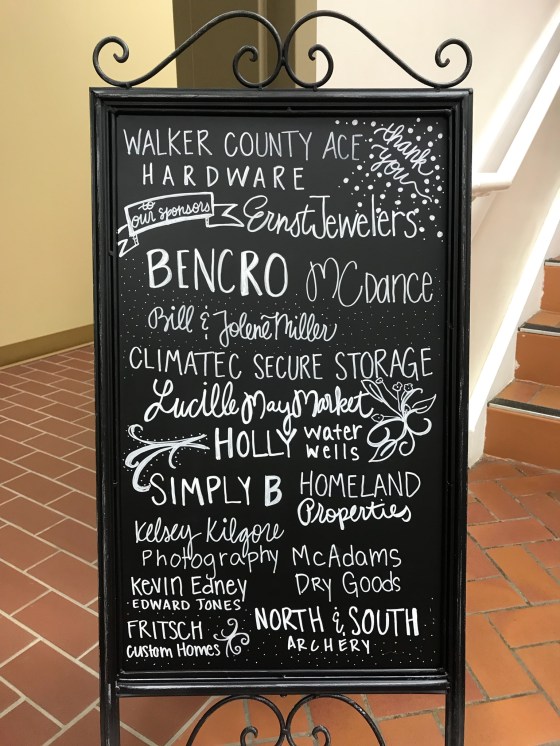 WALKER COUNTY ACE
HARDWARE
thank
you
to
our sponsors
Ernst Jewelers
BENCRO
MC Dance
Bill & Jolene Miller
CLIMATEC SECURE STORAGE
Lucille May Market
HOLLY water
wells
SIMPLY B
HOMELAND
Properties
Kelsey Kilgore
Photography
McAdams
Dry Goods
Kevin Edney
EDWARD JONES
FRITSCH
Custom Homes
NORTH & SOUTH
ARCHERY